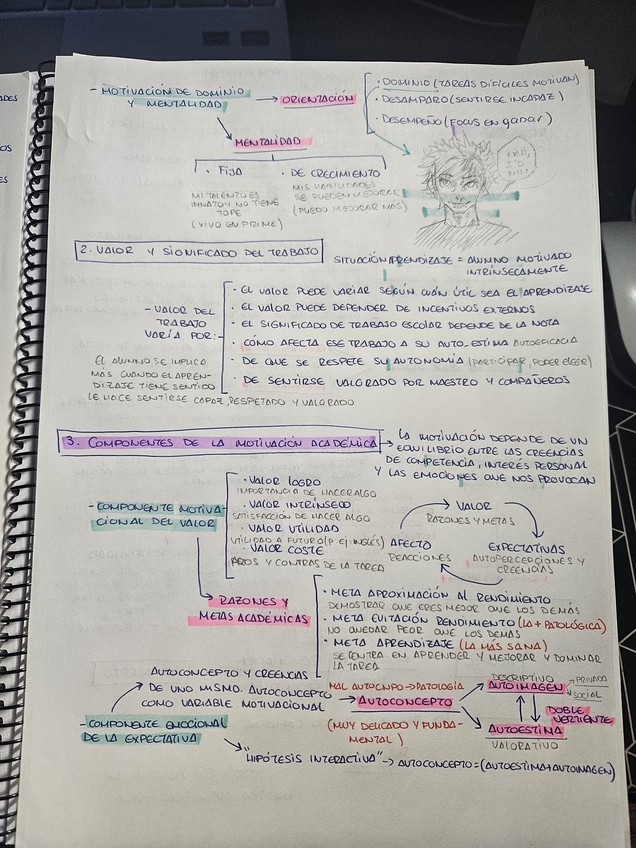 - MOTIVACIÓN DE DOMINIO
Y MENTALIDAD
→ ORIENTACIÓN
· DOMINIO (TAREAS DIFÍCILES MOTIVAN)
· DESAMPARO (SENTIRSE INCAPAZ)
· DESEMPEÑO (FOCUS EN GANAR)
MENTALIDAD
· FIJA
MI TALENTO ES
INNATO Y NO TIENE
TOPE
(VIVO EN PRIME)
· DE CRECIMIENTO
MIS HABILIDADES
SE PUEDEN MEJORAR
(PUEDO MEJORAR MÁS)
2. VALOR Y SIGNIFICADO DEL TRABAJO
SITUACIÓN APRENDIZAJE = ALUMNO MOTIVADO
INTRÍNSECAMENTE
- VALOR DEL
TRABAJO
VARÍA POR:
· EL VALOR PUEDE VARIAR SEGÚN CUÁN ÚTIL SEA EL APRENDIZAJE
· EL VALOR PUEDE DEPENDER DE INCENTIVOS EXTERNOS
· EL SIGNIFICADO DE TRABAJO ESCOLAR DEPENDE DE LA NOTA
· CÓMO AFECTA ESE TRABAJO A SU AUTO-ESTIMA AUTOEFICACIA
· DE QUE SE RESPETE SU AUTONOMÍA (PARTICIPAR, PODER ELEGIR)
· DE SENTIRSE VALORADO POR MAESTRO Y COMPAÑEROS
EL ALUMNO SE IMPLICA
MÁS CUANDO EL APREN-
DIZAJE TIENE SENTIDO
LE HACE SENTIRSE CAPAZ, RESPETADO Y VALORADO
3. COMPONENTES DE LA MOTIVACIÓN ACADÉMICA
→ LA MOTIVACIÓN DEPENDE DE UN
EQUILIBRIO ENTRE LAS CREENCIAS
DE COMPETENCIA, INTERÉS PERSONAL
Y LAS EMOCIONES QUE NOS PROVOCAN
- COMPONENTE MOTIVA-
CIONAL DEL VALOR
· VALOR LOGRO
IMPORTANCIA DE HACER ALGO
· VALOR INTRÍNSECO
SATISFACCIÓN DE HACER ALGO
· VALOR UTILIDAD
UTILIDAD A FUTURO (P. EJ: INGLÉS)
· VALOR COSTE
PROS Y CONTRAS DE LA TAREA
VALOR
RAZONES Y METAS
EXPECTATIVAS
AUTOPERCEPCIONES Y
CREENCIAS
AFECTO
REACCIONES
RAZONES Y
METAS ACADÉMICAS
· META APROXIMACIÓN AL RENDIMIENTO
DEMOSTRAR QUE ERES MEJOR QUE LOS DEMÁS
· META EVITACIÓN RENDIMIENTO (LA + PATOLÓGICA)
NO QUEDAR PEOR QUE LOS DEMÁS
· META APRENDIZAJE (LA MÁS SANA)
SE CENTRA EN APRENDER Y MEJORAR Y DOMINAR
LA TAREA
- COMPONENTE EMOCIONAL
DE LA EXPECTATIVA
AUTOCONCEPTO Y CREENCIAS
DE UNO MISMO. AUTOCONCEPTO
COMO VARIABLE MOTIVACIONAL
MAL AUTOCNPO → PATOLOGÍA
→ AUTOCONCEPTO
(MUY DELICADO Y FUNDA-
MENTAL)
DESCRIPTIVO
AUTOIMAGEN
→ PRIVADA
→ SOCIAL
DOBLE
VERTIENTE
AUTOESTIMA
VALORATIVO
"HIPÓTESIS INTERACTIVA" → AUTOCONCEPTO = (AUTOESTIMA + AUTOIMAGEN)